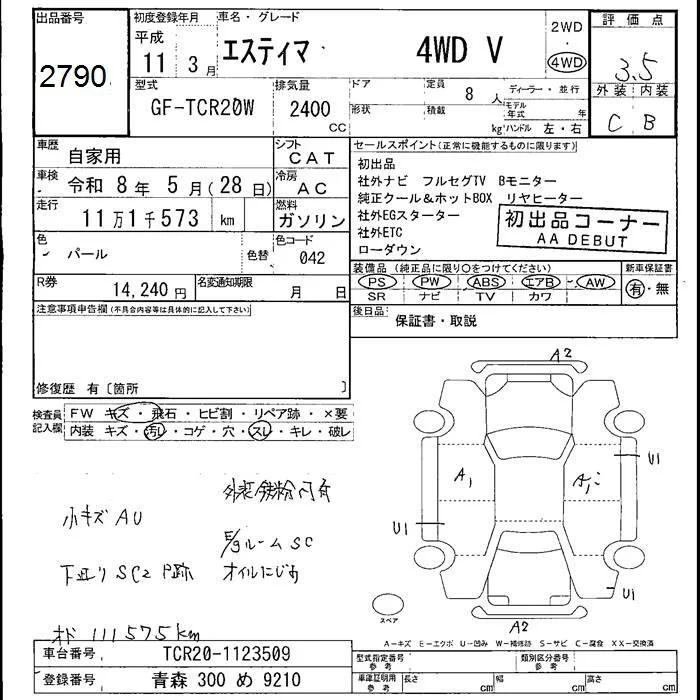 出品番号
2790
初度登録年月
平成
11年 3月
車名・グレード
エスティマ 4WD V
2WD
・
4WD
評価点
3.5
外装 内装
C B
型式
GF-TCR20W
排気量
2400
CC
ドア
形状
定員
8人
積載
kg
ディーラー・並行
モデル年式 年
ハンドル 左・右
車歴
自家用
シフト
CAT
車検
令和 8年 5月(28日)
冷房
AC
走行
11万1千573 km
燃料
ガソリン
色
パール
色替
色コード
042
R券
14,240円
名変通知期限
月 日
セールスポイント(正常に機能するものに限ります)
初出品
社外ナビ フルセグTV Bモニター
純正クール&ホットBOX リヤヒーター
社外EGスターター
社外ETC
ローダウン
初出品コーナー
AA DEBUT
装備品 (純正品に限り○をつけてください)
PS PW ABS エアB AW
SR ナビ TV カワ
新車保証書
有・無
後日品
保証書・取説
注意事項申告欄(不具合内容等は具体的に記入して下さい)
修復歴 有〔箇所 〕
検査員記入欄
FW キズ・飛石・ヒビ割・リペア跡・×要
内装 キズ・汚レ・コゲ・穴・スレ・キレ・破レ
小キズ AU
下廻り SC2
オド 111575km
E/gルーム SC
オイルにじみ
A2
A1
U1
U1
U1
A2
スペア
A-キズ E-エクボ U-凹み W-補修跡 S-サビ C-腐食 XX-交換済
車台番号
TCR20-1123509
登録番号
青森 300 め 9210
型式指定番号
参考
類別区分番号
参考
車庫証明用
参考
長さ cm
幅 cm
高さ cm